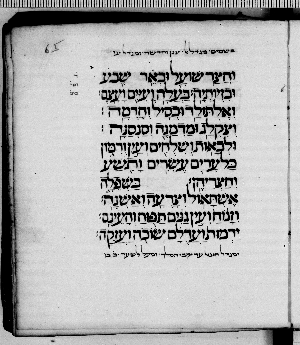 65
וחצר שועל ובאר שבע
ובזיותיה בעלה ועיים ועצם
ואלתולד וכסיל וחרמה
וצקלג ומדמנה וסנסנה
ולבאות ושלחים ועין ורמון
כל ערים עשרים ותשע
וחצריהן׃ בשפלה
אשתאול וצרעה ואשנה
וזנוח ועין גנים תפוח והעינם
ירמות ועדלם שוכה ועזקה